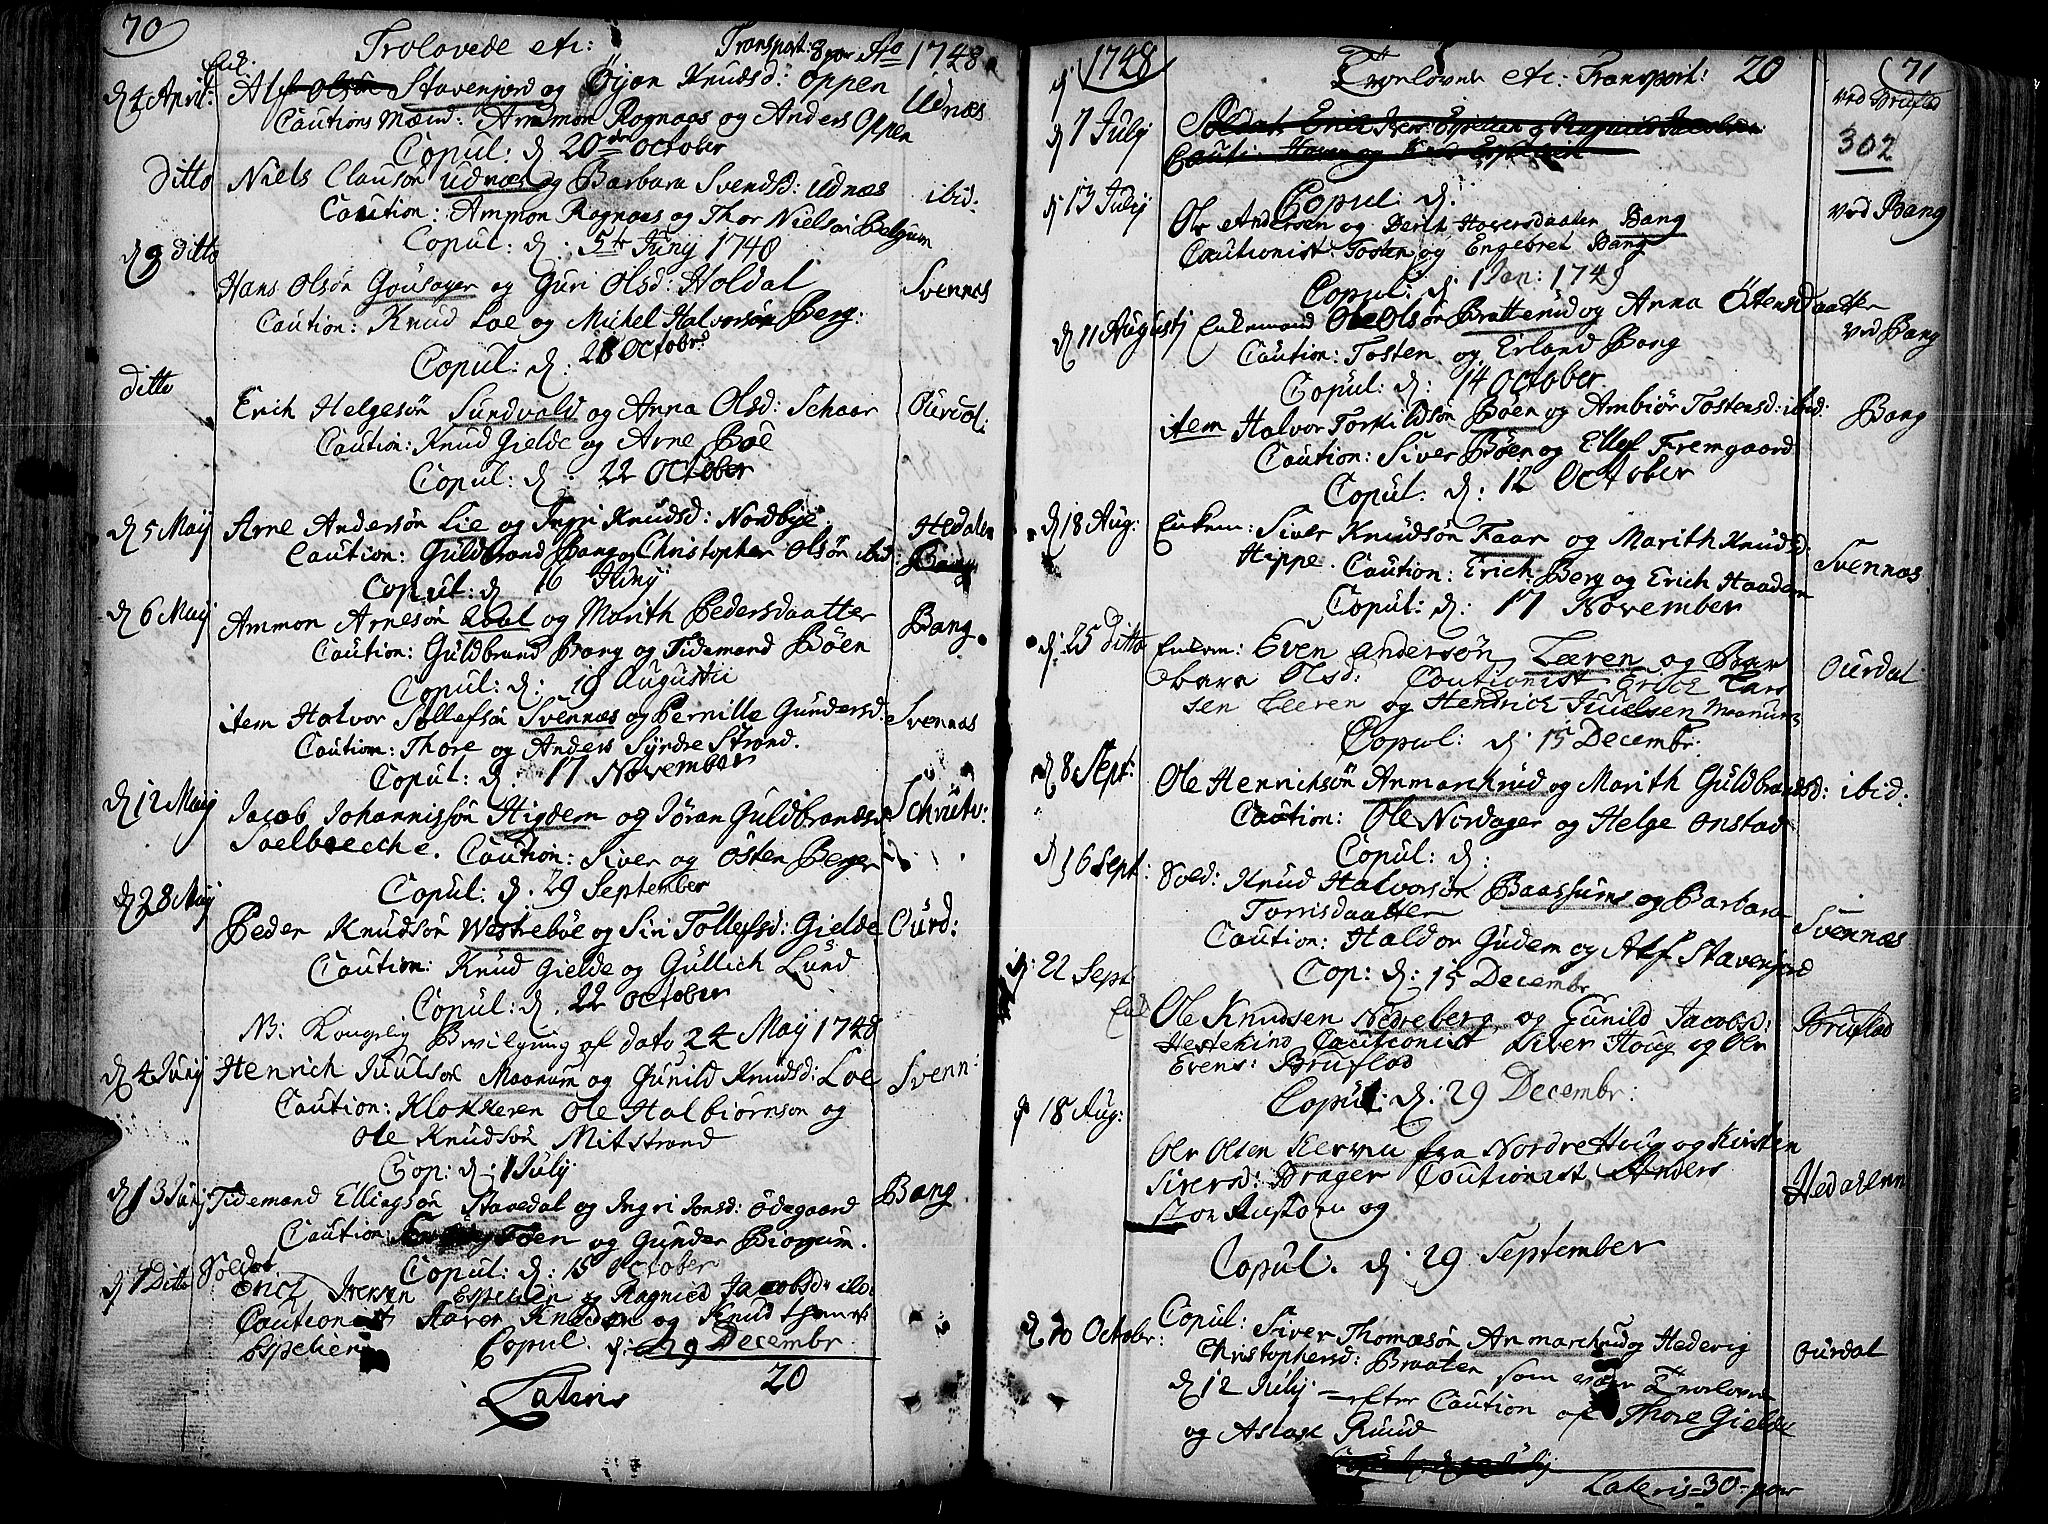 70
Trolovede etc: Transport: 8 par Ao 1748
Enk.
d 4 April: Alf Olsön Stavenjord og Öijon Knudsd: Oppen Udnæs
Cautions Mænd: Ammon Rognaas og Anders Oppen
Copul: d 20de October
ditto Niels Clausön Udnæs og Barbara Svendsd: Udnæs ibid:
Caution: Ammon Rognaas og Thor Nielsön Belgum
Copul: d: 5te Junij 1748
d 9 ditto Hans Olsön Gousager og Guri Olsd: Holdal Svennæs
Caution: Knud Loe og Michel Halvorsön Berg:
Copul: d: 21 Octobr
ditto Erich Helgesön Sundvold og Anna Olsd: Schaar Ourdal:
Caution: Knud Gielde og Arne Böe
Copul: d: 22 October
d 5 Maij Arne Andersön Lie og Ingri Knudsd: Nordbye Hedalen
Caution: Guldbrand Bang og Christopher Olsön ibid: Bang
Copul: d 16 Junij
d 6 Maij Ammon Arnesön og Marith Pedersdaatter Bang
Caution: Guldbrand Bang og Tidemand Böen
Copul: d: 19 Augustii
item Halvor Tollefsön Svennæs og Pernille Gundersd: Svennæs
Caution: Thore og Anders Syndre Strand.
Copul: d: 17 November
d 12 Maij Jacob Johannissön Higdem og Jöran Guldbrandsd Schrutv:
Soelbrecche. Caution: Siver og Östen Berge
Copul: d. 29 September
d 28 Maij Peder Knudsön Westreböe og Siri Tollefsd: Gielde Ourd:
Caution: Knud Gielde og Gullich Lund
Copul: d. 22 October
NB: Kongelig Bevilgning af dato 24 Maij 1748
d 4 Junij Henrich Juulsön Moanum og Gunild Knudsd: Loe Svenn:
Caution: Klokkeren Ole Halbiörnsön og
Ole Knudsön Mitstrand
Cop: d: 1 Julij
d 13 Junij Tidemand Ellingsön Stavedal og Ingri Jonsd: Ödegaard Bang
Caution: Töen og Gunder Biorgum.
Copul: d: 15 October
d 7 Ditto Soldat Erich Iversen Espelien og Ragnild Jacobsd: ibd:
Cautionist Haver Knudsen og Knud
Espelien Copul. d: 29 Decembr
20
Lateris
1748 Trolovede etc: Transport: 20 71
ved Bruflad
d 7 Julij Soldat Erich Ivers: Espelien og Ragnild Jacobsd:
Cauti: Haver og Knud Espelien 302
Copul: d:
d 13 Julij Ole Andersen og Berith Haversdaatter Bang ved Bang
Cautionist: Tosten og Engebret Bang
Copul: d: 1 Jan: 1748
d 11 Augustj Enkemand Ole Olsön Bratterud og Anna Östensdaatter ved Bang
Caution: Tosten og Erland Bang
Copul: d: 14 October.
item Halvor Torkildsön Böen og Ambiör Tostensd: ibid: Bang
Caution: Siver Böen og Ellef Fremgaard
Copul: d: 12 October
d 18 Aug: Enkem: Siver Knudsön Faar og Marith Knudsd: Svennæs
Hippe. Caution: Erich Berg og Erich Haadem
Copul: d: 17 November
d: 25 Ditto Enkem: Even Andersön Leeren og Bar Ourdal
bara Olsd: Cautionist Erick Lar
sen Leeren og Hendrich Juulsen Moanum
Copul: d: 15 Decembr:
d 8 Sept: Ole Henrichsön Anmarkrud og Marith Guldbrandsd: ibid:
Caution: Ole Nordager og Helge Onstad
Copul: d:
d 16 Sept: Sold: Knud Halvorsön Baassums og Barbara Svennæs
Torrisdaatter
Caution: Haldor Gudem og Alf Stavenjord
Cop: d: 15 Decembr
d: 22 Sept Ole Knudsen Nedreberg og Gunild Jacobsd: Bruflad
Hestekind Cautionist Siver Houg og Ole
Evens: Bruflad
Copul: d. 29 Decembr:
d 18 Aug: Ole Olsen fra Nordre Houg og Kirsten Hedalenn
Siversd: Brager Cautionist Anders
og
Copul. d 29 September
d 10 Octobr: Copul: Siver Thomæsön Anmarckrud og Hedevig Ourdal
Christophersd: Braaten som vare Trolovede
d 12 Julij efter Caution af Thore Gielde
og Aslack Ruud
Lateris 30 par